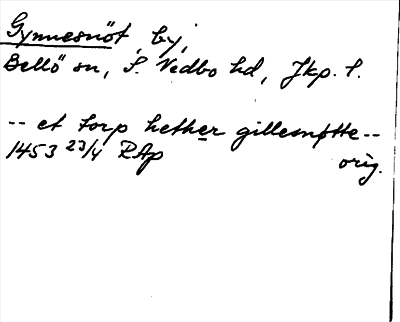 Gynnesnöt by,
Bellö sn, S. Vedbo hd, Jkp. l.
-- et torp hether gillesnøtte --
1453 23/4 RAp orig.